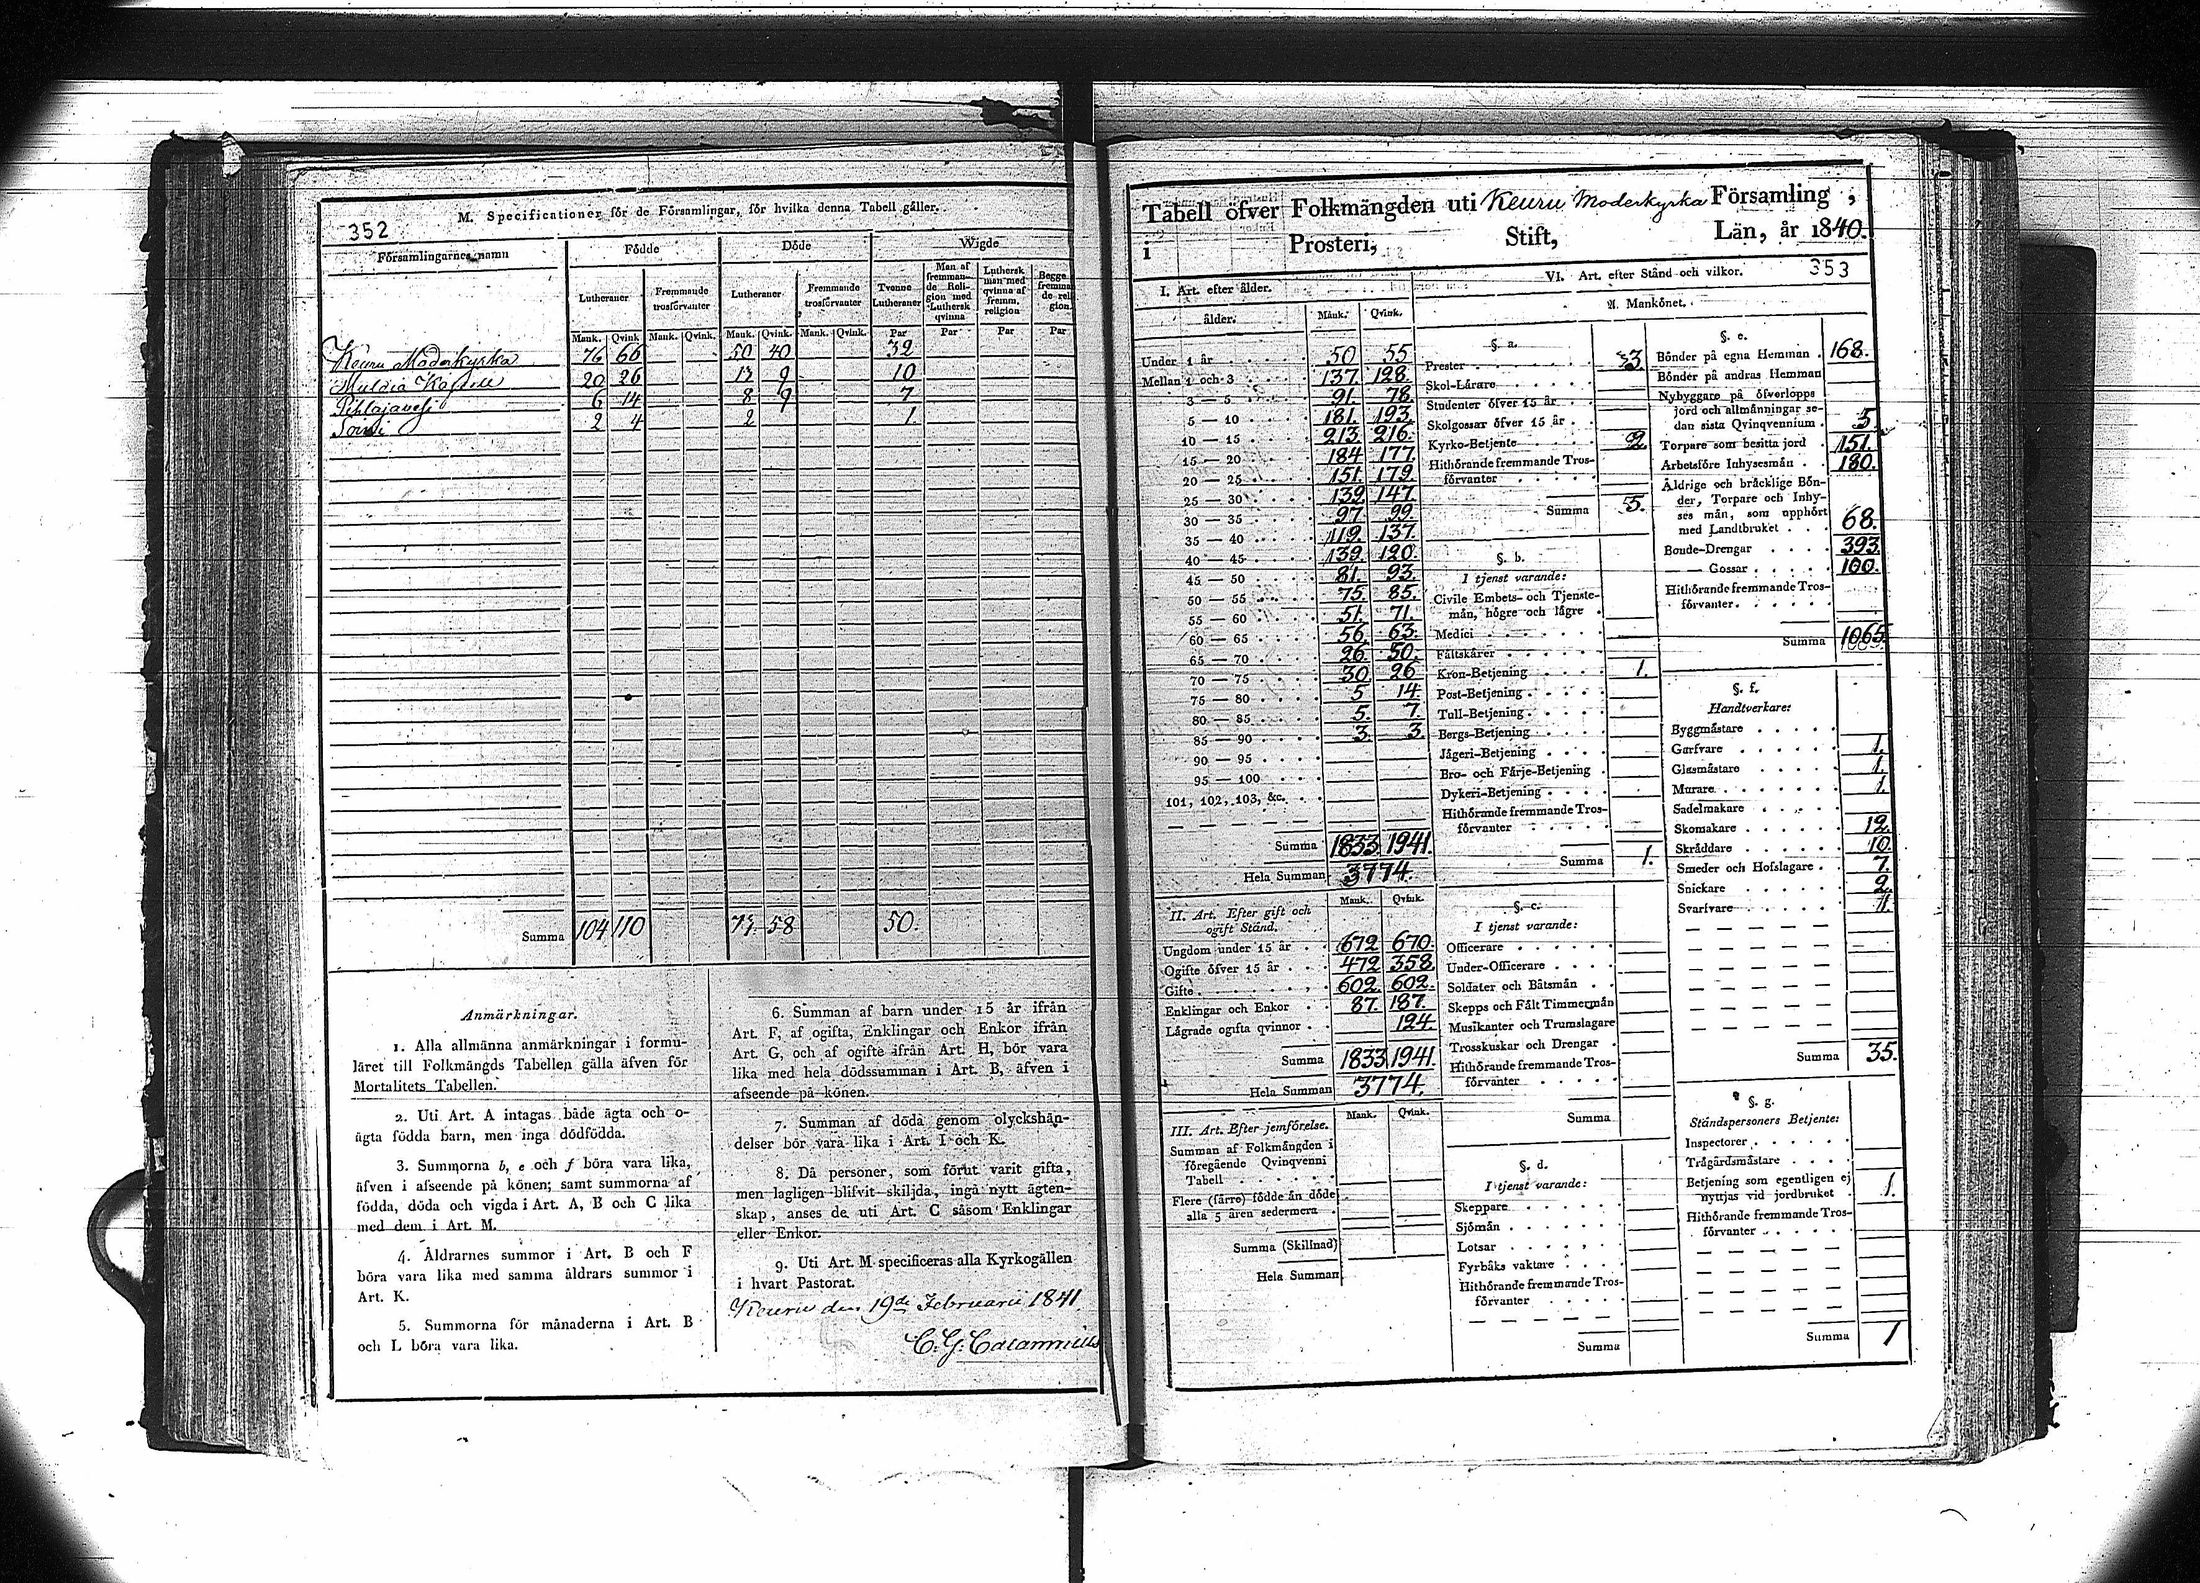 352
M. Specificationer för de Församlingar, för hvilka denna Tabell gäller.
Församlingarnes namn
Födde
Döde
Wigde
Lutheraner
Fremmande trosförvanter
Lutheraner
Fremmande trosförvanter
Tvenne Lutheraner
Man af fremmande Religion med Luthersk qvinna
Luthersk man med qvinna af fremm. religion
Begge fremmande religion.
Mank. Qvink. Mank. Qvink. Mank. Qvink. Mank. Qvink. Par Par Par Par
Keuru Moderkyrka 76 66 50 40 32
Muldia Kapell 20 26 13 9 10
Pihlajavesi 6 14 8 9 7
2 4 2 1.
Summa 104 110 73. 58 50.
Anmärkningar.
1. Alla allmänna anmärkningar i formu-
läret till Folkmängds Tabellen gälla äfven för
Mortalitets Tabellen.
2. Uti Art. A intagas både ägta och o-
ägta födda barn, men inga dödfödda.
3. Summorna b, e och f böra vara lika,
äfven i afseende på könen; samt summorna af
födda, döda och vigda i Art. A, B och C lika
med dem i Art. M.
4. Åldrarnes summor i Art. B och F
böra vara lika med samma åldrars summor i
Art. K.
5. Summorna för månaderna i Art. B
och L böra vara lika.
6. Summan af barn under 15 år ifrån
Art. F, af ogifta, Enklingar och Enkor ifrån
Art. G, och af ogifte ifrån Art. H, bör vara
lika med hela dödssumman i Art. B, äfven i
afseende på könen.
7. Summan af döda genom olyckshän-
delser bör vara lika i Art. I och K.
8. Då personer, som förut varit gifta,
men lagligen blifvit skiljda, ingå nytt ägten-
skap, anses de uti Art. C såsom Enklingar
eller Enkor.
9. Uti Art. M specificeras alla Kyrkogällen
i hvart Pastorat.
Keuru den 19de Februarii 1841.
C. G. Calamnius
Tabell öfver Folkmängden uti Keuru Moderkyrka Församling,
i Prosteri, Stift, Län, år 1840.
353
I. Art. efter ålder.
ålder. Mank. Qvink.
Under 1 år 50 55
Mellan 1 och 3 137. 128.
3 — 5 91. 78.
5 — 10 181. 193.
10 — 15 213. 216.
15 — 20 184 177.
20 — 25 151. 179.
25 — 30 139 147.
30 — 35 97. 99.
35 — 40 119. 137.
40 — 45 139. 120.
45 — 50 81. 93.
50 — 55 75. 85.
55 — 60 51. 71.
60 — 65 56. 63.
65 — 70 26. 50.
70 — 75 30. 26.
75 — 80 5 14.
80 — 85 5. 7.
85 — 90 3. 3.
90 — 95
95 — 100
101, 102, 103, &c.
Summa 1833. 1941.
Hela Summan 3774.
II. Art. Efter gift och
ogift Stånd.
Mank. Qvink.
Ungdom under 15 år 672 670.
Ogifte öfver 15 år 472 358.
Gifte 602. 602.
Enklingar och Enkor 87. 187.
Lägrade ogifta qvinnor 124.
Summa 1833. 1941.
Hela Summan 3774.
III. Art. Efter jemförelse.
Mank. Qvink.
Summan af Folkmängden i
föregående Qvinqvenni
Tabell
Flere (färre) födde än döde
alla 5 åren sedermera
Summa (Skillnad)
Hela Summan
VI. Art. efter Stånd och vilkor.
A. Mankönet.
§. a.
Prester 3.
Skol-Lärare
Studenter öfver 15 år
Skolgossar öfver 15 år
Kyrko-Betjente 2.
Hithörande fremmande Tros-
förvanter
Summa 5.
§. b.
I tjenst varande:
Civile Embets- och Tjenste-
män, högre och lägre
Medici
Fältskärer
Kron-Betjening 1.
Post-Betjening
Tull-Betjening
Bergs-Betjening
Jägeri-Betjening
Bro- och Färje-Betjening
Dykeri-Betjening
Hithörande fremmande Tros-
förvanter
Summa 1.
§. c.
I tjenst varande:
Officerare
Under-Officerare
Soldater och Båtsmän
Skepps och Fält Timmermän
Musikanter och Trumslagare
Trosskuskar och Drengar
Hithörande fremmande Tros-
förvanter
Summa
§. d.
I tjenst varande:
Skeppare
Sjömän
Lotsar
Fyrbåks vaktare
Hithörande fremmande Tros-
förvanter
Summa
§. e.
Bönder på egna Hemman 168.
Bönder på andras Hemman
Nybyggare på öfverlopps
jord och allmänningar se-
dan sista Qvinqvennium 5
Torpare som besitta jord 151.
Arbetsföre Inhysesmän 180.
Åldrige och bräcklige Bön-
der, Torpare och Inhy-
ses män, som upphört
med Landtbruket 68.
Bonde-Drengar 393.
— — Gossar 100.
Hithörande fremmande Tros-
förvanter
Summa 1065.
§. f.
Handtverkare:
Byggmästare
Garfvare 1.
Glasmästare 1.
Murare 1.
Sadelmakare
Skomakare 12.
Skräddare 10.
Smeder och Hofslagare 7.
Snickare 2.
Svarfvare 1.
Summa 35.
§. g.
Ståndspersoners Betjente:
Inspectorer
Trägårdsmästare
Betjening som egentligen ej
nyttjas vid jordbruket 1.
Hithörande fremmande Tros-
förvanter
Summa 1